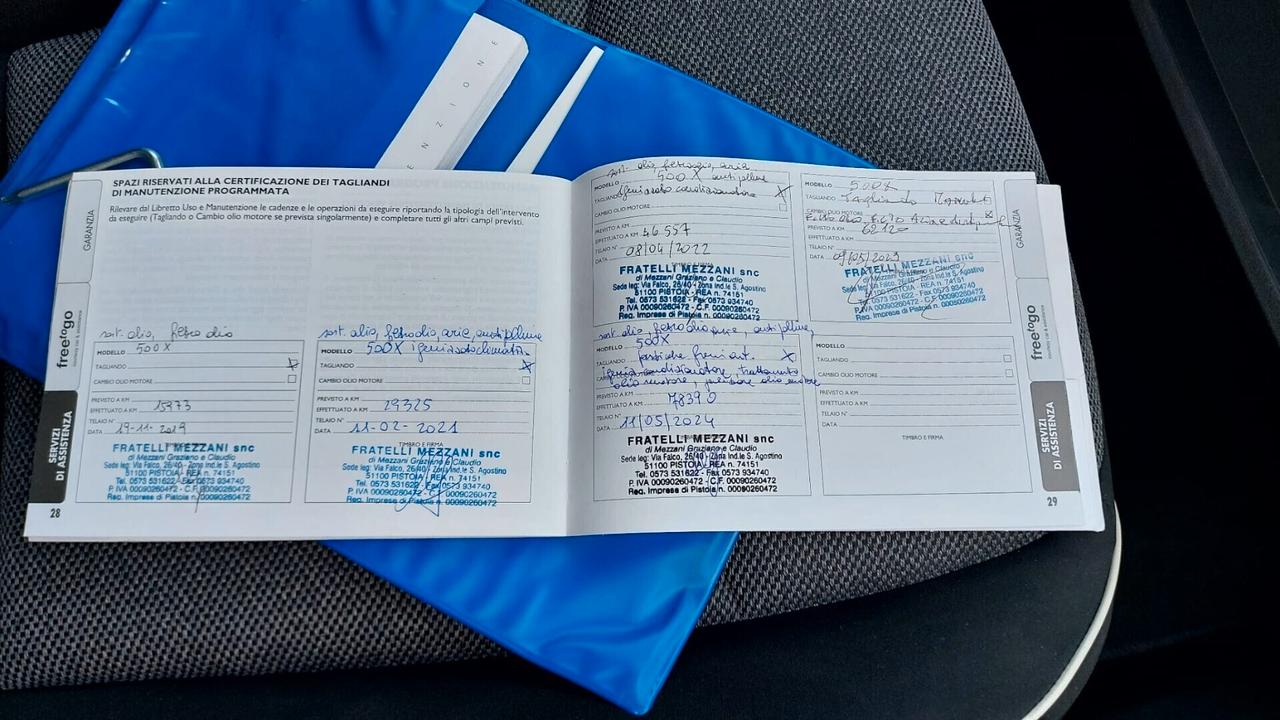 E N Z I O N E
SPAZI RISERVATI ALLA CERTIFICAZIONE DEI TAGLIANDI
DI MANUTENZIONE PROGRAMMATA
Rilevare dal Libretto Uso e Manutenzione le cadenze e le operazioni da eseguire riportando la tipologia dell'intervento
da eseguire (Tagliando o Cambio olio motore se prevista singolarmente) e completare tutti gli altri campi previsti.
GARANZIA
freetogo
SERVIZI
DI ASSISTENZA
sost. olio, filtro olio
MODELLO 500X
TAGLIANDO X
CAMBIO OLIO MOTORE
PREVISTO A KM
EFFETTUATO A KM 15973
TELAIO N°
DATA 19-11-2019
TIMBRO E FIRMA
FRATELLI MEZZANI snc
di Mezzani Graziano e Claudio
Sede leg: Via Falco, 26/40 - Zona Ind.le S. Agostino
51100 PISTOIA - REA n. 74151
Tel. 0573 531622 - Fax 0573 934740
P. IVA 00090260472 - C.F. 00090260472
Reg. Imprese di Pistoia n. 00090260472
28
sost. olio, filtro olio, aria, antipolline
MODELLO 500X
TAGLIANDO X
CAMBIO OLIO MOTORE
PREVISTO A KM
EFFETTUATO A KM 29325
TELAIO N°
DATA 11-02-2021
TIMBRO E FIRMA
FRATELLI MEZZANI snc
di Mezzani Graziano e Claudio
Sede leg: Via Falco, 26/40 - Zona Ind.le S. Agostino
51100 PISTOIA - REA n. 74151
Tel. 0573 531622 - Fax 0573 934740
P. IVA 00090260472 - C.F. 00090260472
Reg. Imprese di Pistoia n. 00090260472
sost. olio, filtro olio, aria
MODELLO 500X antipolline
TAGLIANDO igenizzato condizionatore X
CAMBIO OLIO MOTORE
PREVISTO A KM
EFFETTUATO A KM 46557
TELAIO N°
DATA 08/04/2022
FRATELLI MEZZANI snc
di Mezzani Graziano e Claudio
Sede leg: Via Falco, 26/40 - Zona Ind.le S. Agostino
51100 PISTOIA - REA n. 74151
Tel. 0573 531622 - Fax 0573 934740
P. IVA 00090260472 - C.F. 00090260472
Reg. Imprese di Pistoia n. 00090260472
MODELLO 500X
TAGLIANDO Tagliando
CAMBIO OLIO MOTORE X
PREVISTO A KM
EFFETTUATO A KM 62120
TELAIO N°
DATA 09/05/2023
FRATELLI MEZZANI snc
di Mezzani Graziano e Claudio
Sede leg: Via Falco, 26/40 - Zona Ind.le S. Agostino
51100 PISTOIA - REA n. 74151
Tel. 0573 531622 - Fax 0573 934740
P. IVA 00090260472 - C.F. 00090260472
Reg. Imprese di Pistoia n. 00090260472
sost. olio, filtro olio, aria, antipolline,
MODELLO 500X
TAGLIANDO pastiche freni ant. X
igenizza condizionatore, trattamento
olio motore, pressione olio motore
PREVISTO A KM
EFFETTUATO A KM 78390
TELAIO N°
DATA 11/05/2024
FRATELLI MEZZANI snc
di Mezzani Graziano e Claudio
Sede leg: Via Falco, 26/40 - Zona Ind.le S. Agostino
51100 PISTOIA - REA n. 74151
Tel. 0573 531622 - Fax 0573 934740
P. IVA 00090260472 - C.F. 00090260472
Reg. Imprese di Pistoia n. 00090260472
MODELLO
TAGLIANDO
CAMBIO OLIO MOTORE
PREVISTO A KM
EFFETTUATO A KM
TELAIO N°
DATA
TIMBRO E FIRMA
GARANZIA
freetogo
SERVIZI
DI ASSISTENZA
29